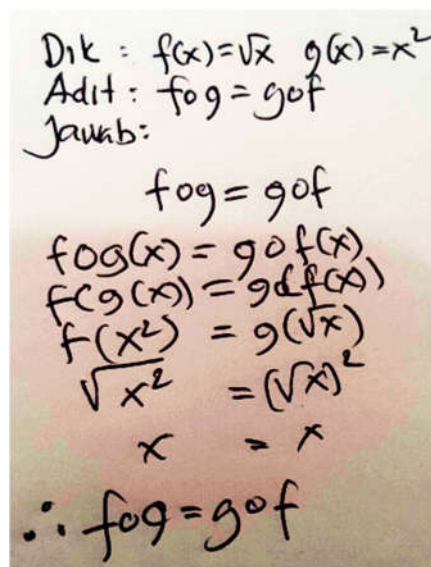 Dik : f(x)=√x g(x)=x²
Adit : fog = gof
Jawab:
fog = gof
fog(x) = gof(x)
f(g(x)) = g(f(x))
f(x²) = g(√x)
√x² = (√x)²
x = x
∴ fog = gof